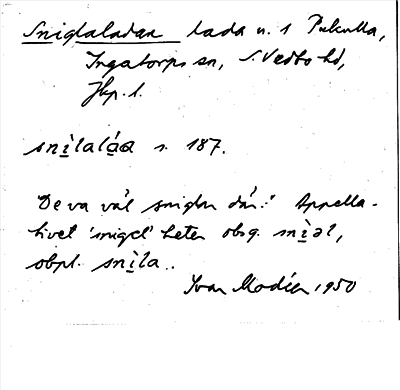 Sniglaladan lada u. 1 Pukulla,
Ingatorps sn, S. Vedbo hd,
Jkp. l.
snìlaláa s. 187.
"De va väl sniglar där." Appella-
tivet 'snigel' heter obsg. snìəl,
obpl. snìla..
Ivar Modéer, 1950